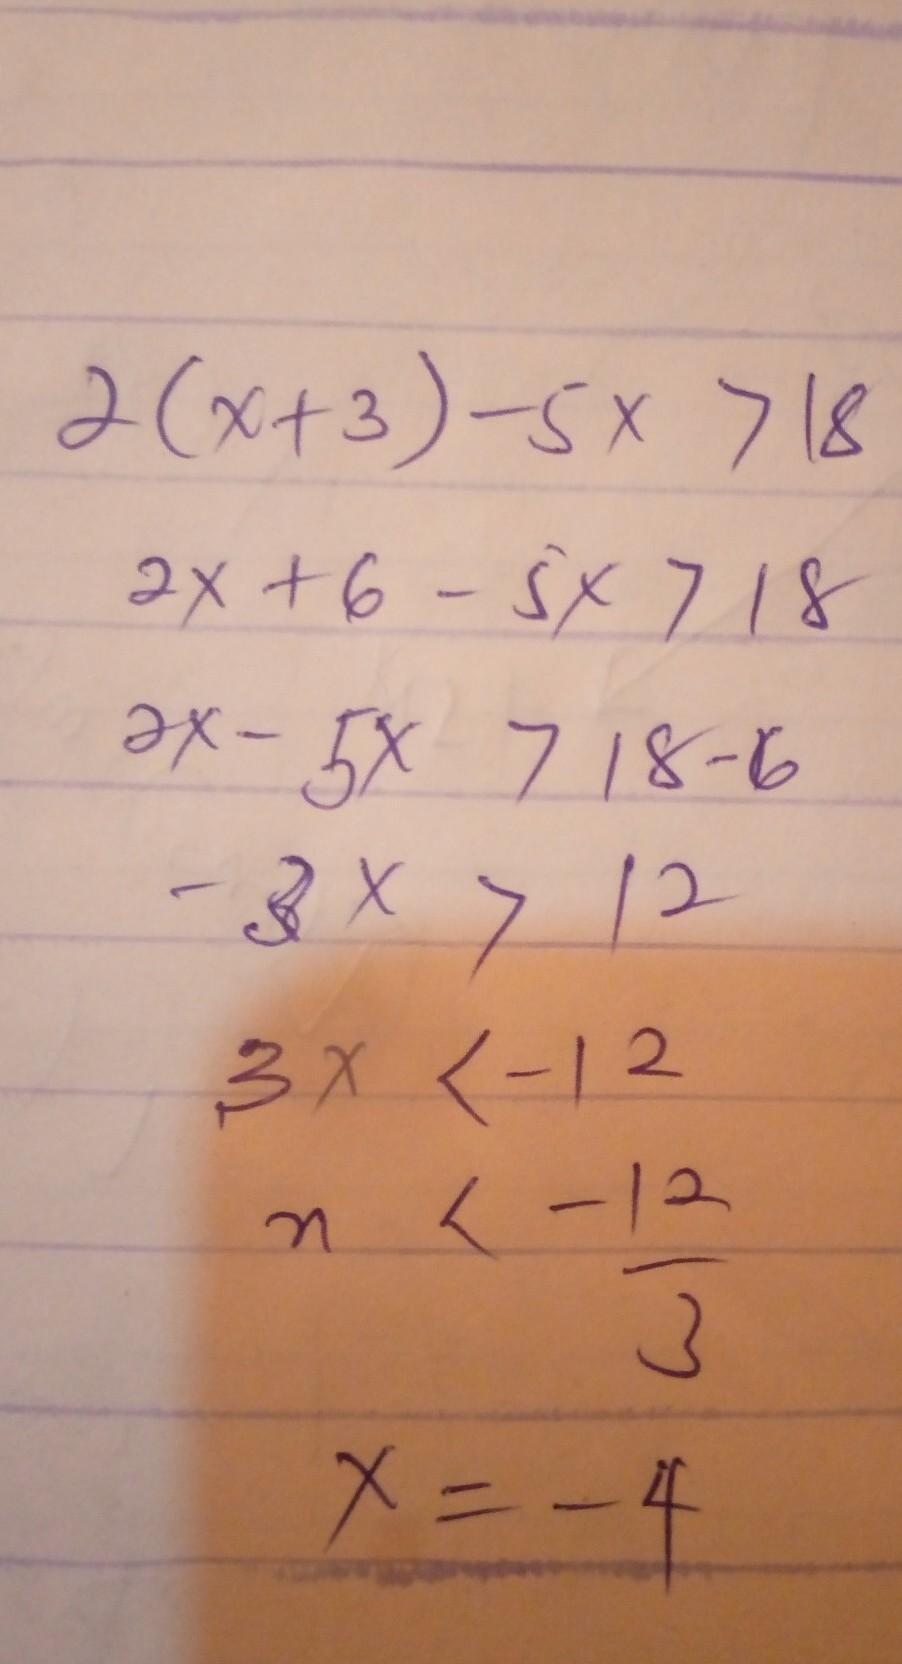 2(x+3)-5x > 18
2x + 6 - 5x > 18
2x - 5x > 18-6
-3x > 12
3x < -12
n < -12/3
x = -4